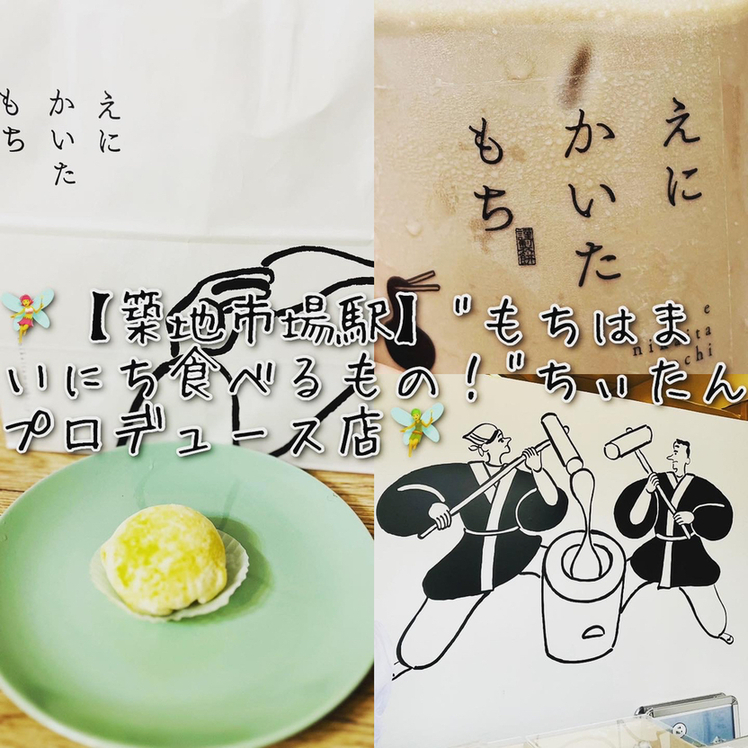 えに
かいた
もち
えに
かいた
もち
謹製餅
🧚【築地市場駅】"もちはま
いにち食べるもの！"ちぃたん
プロデュース店🧚